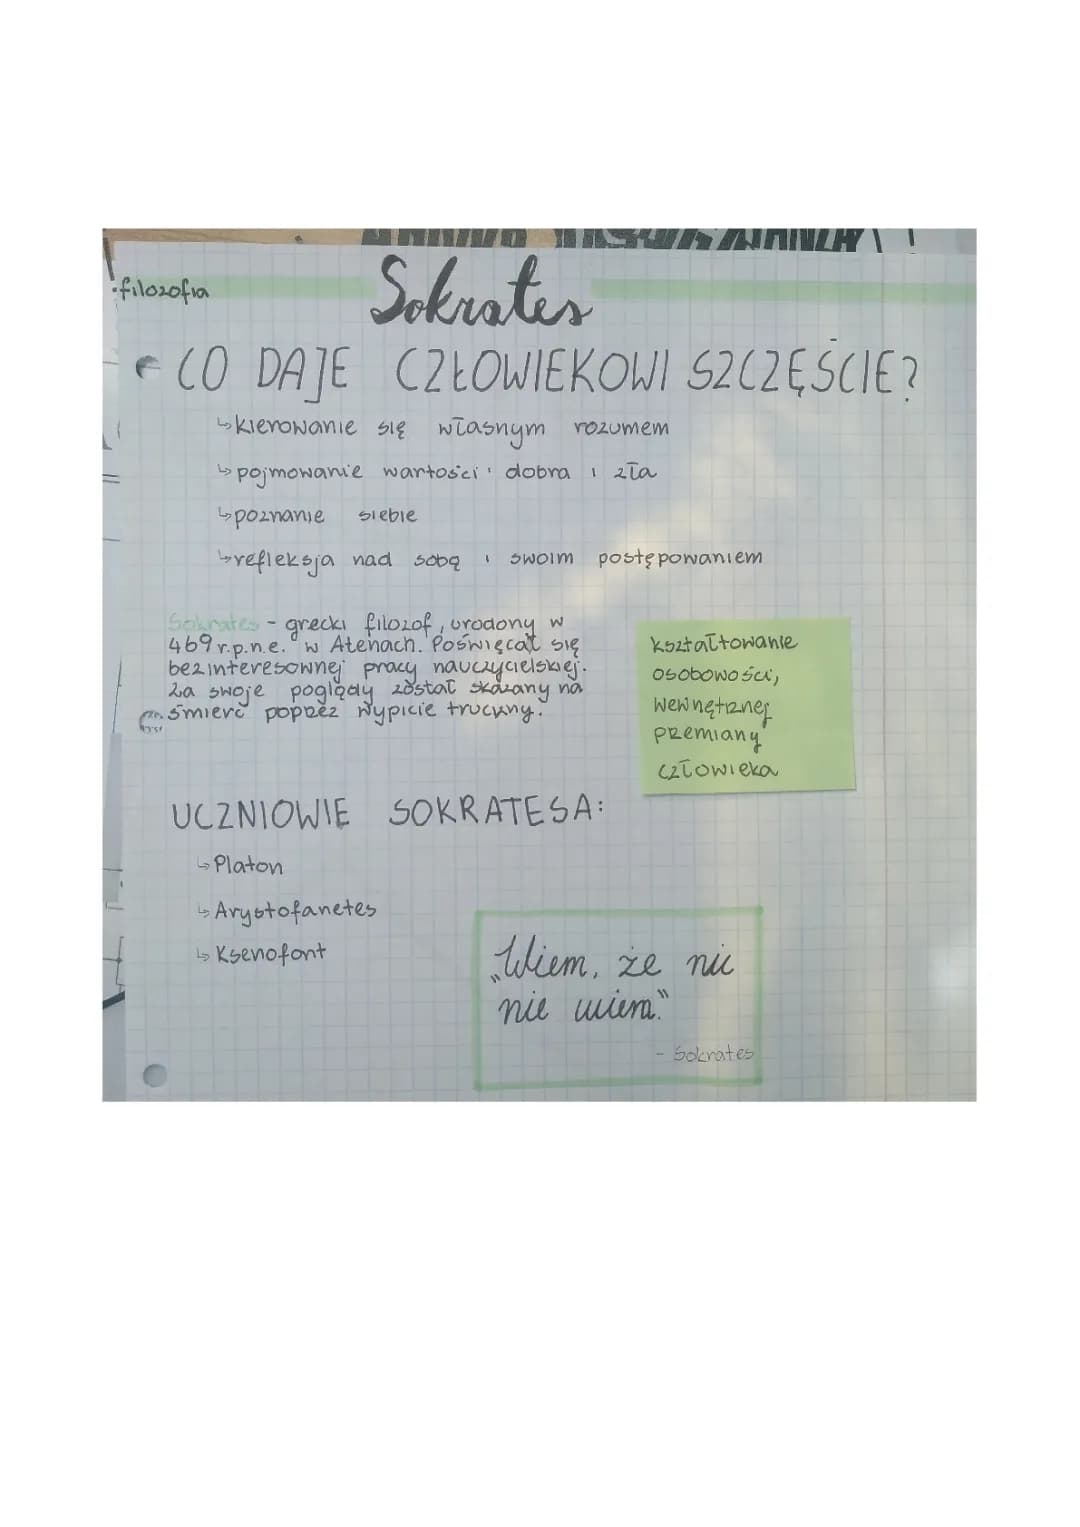 filozofia
Sokrates
CO DAJE CZŁOWIEKOWI SZCZĘŚCIE?
↳kierowanie się własnym rozumem
↳pojmowanie wartości i dobra i zła
↳poznanie siebie
↳refleksja nad sobą i swoim postępowaniem
Sokrates - grecki filozof, urodony w
469 r.p.n.e. w Atenach. Poświęcał się
bezinteresownej pracy nauczycielskiej.
Za swoje poglądy został skazany na
śmierć poprzez wypicie trucizny.
kształtowanie
osobowości,
wewnętrznej
przemiany
człowieka
UCZNIOWIE SOKRATESA:
↳Platon
↳Arystofanetes
↳Ksenofont
„Wiem, że nic
nie wiem."
- Sokrates